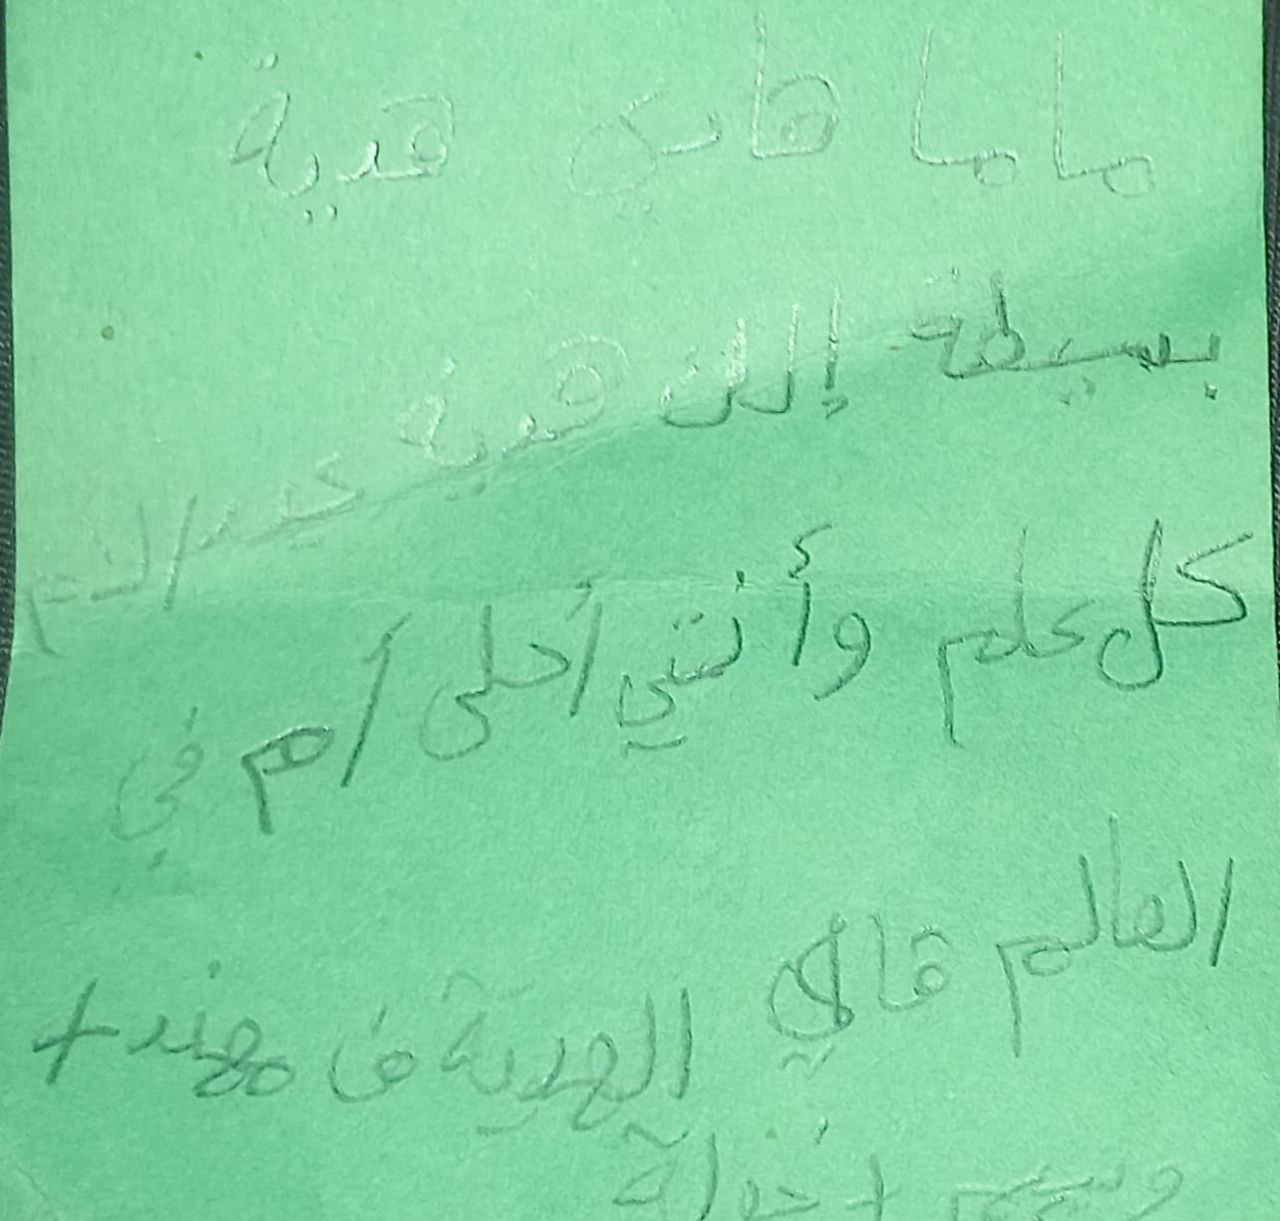 ماما هاي هدية
بسيطة إلك هدية عيد الام
كل علم وأنتي أحلى أم في
العالم هاي الهدية من مهند +
وسيم + خولة